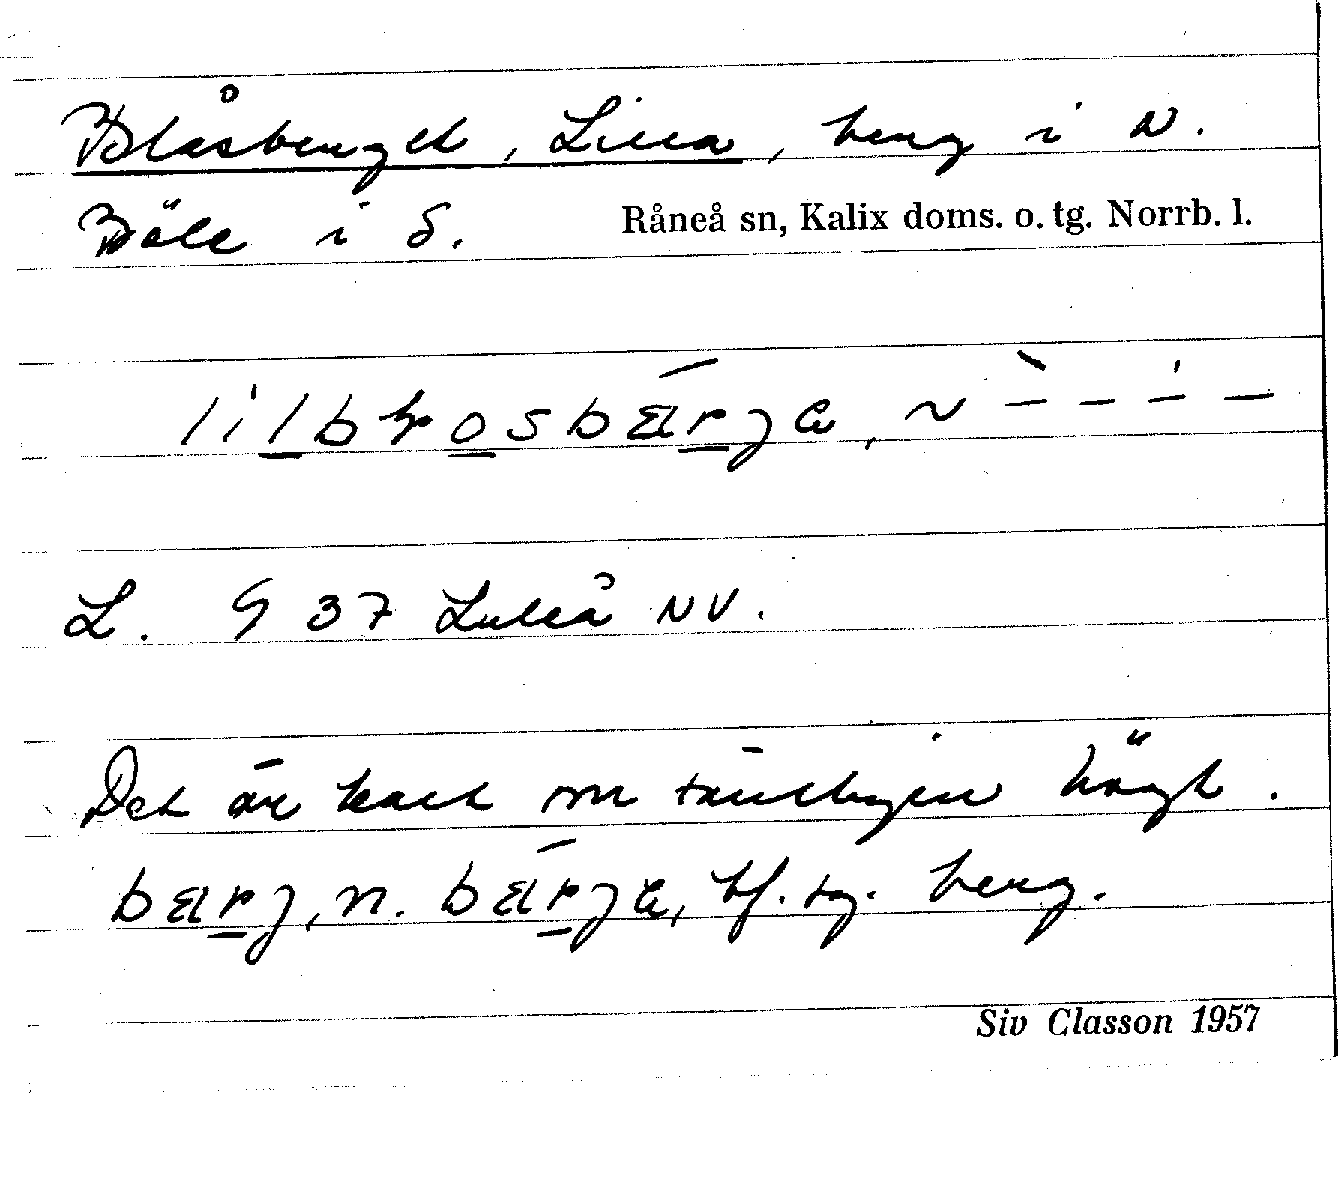 Blåsberget, Lilla, berg i N.
Böle i S. Råneå sn, Kalix doms. o. tg. Norrb. l.
lilbɽosbærja, ~ – – – –
L. 9 37 Luleå NV.
Det är kalt om högt.
bærj, n. bærja, bf. sg. berg.
Siv Classon 1957